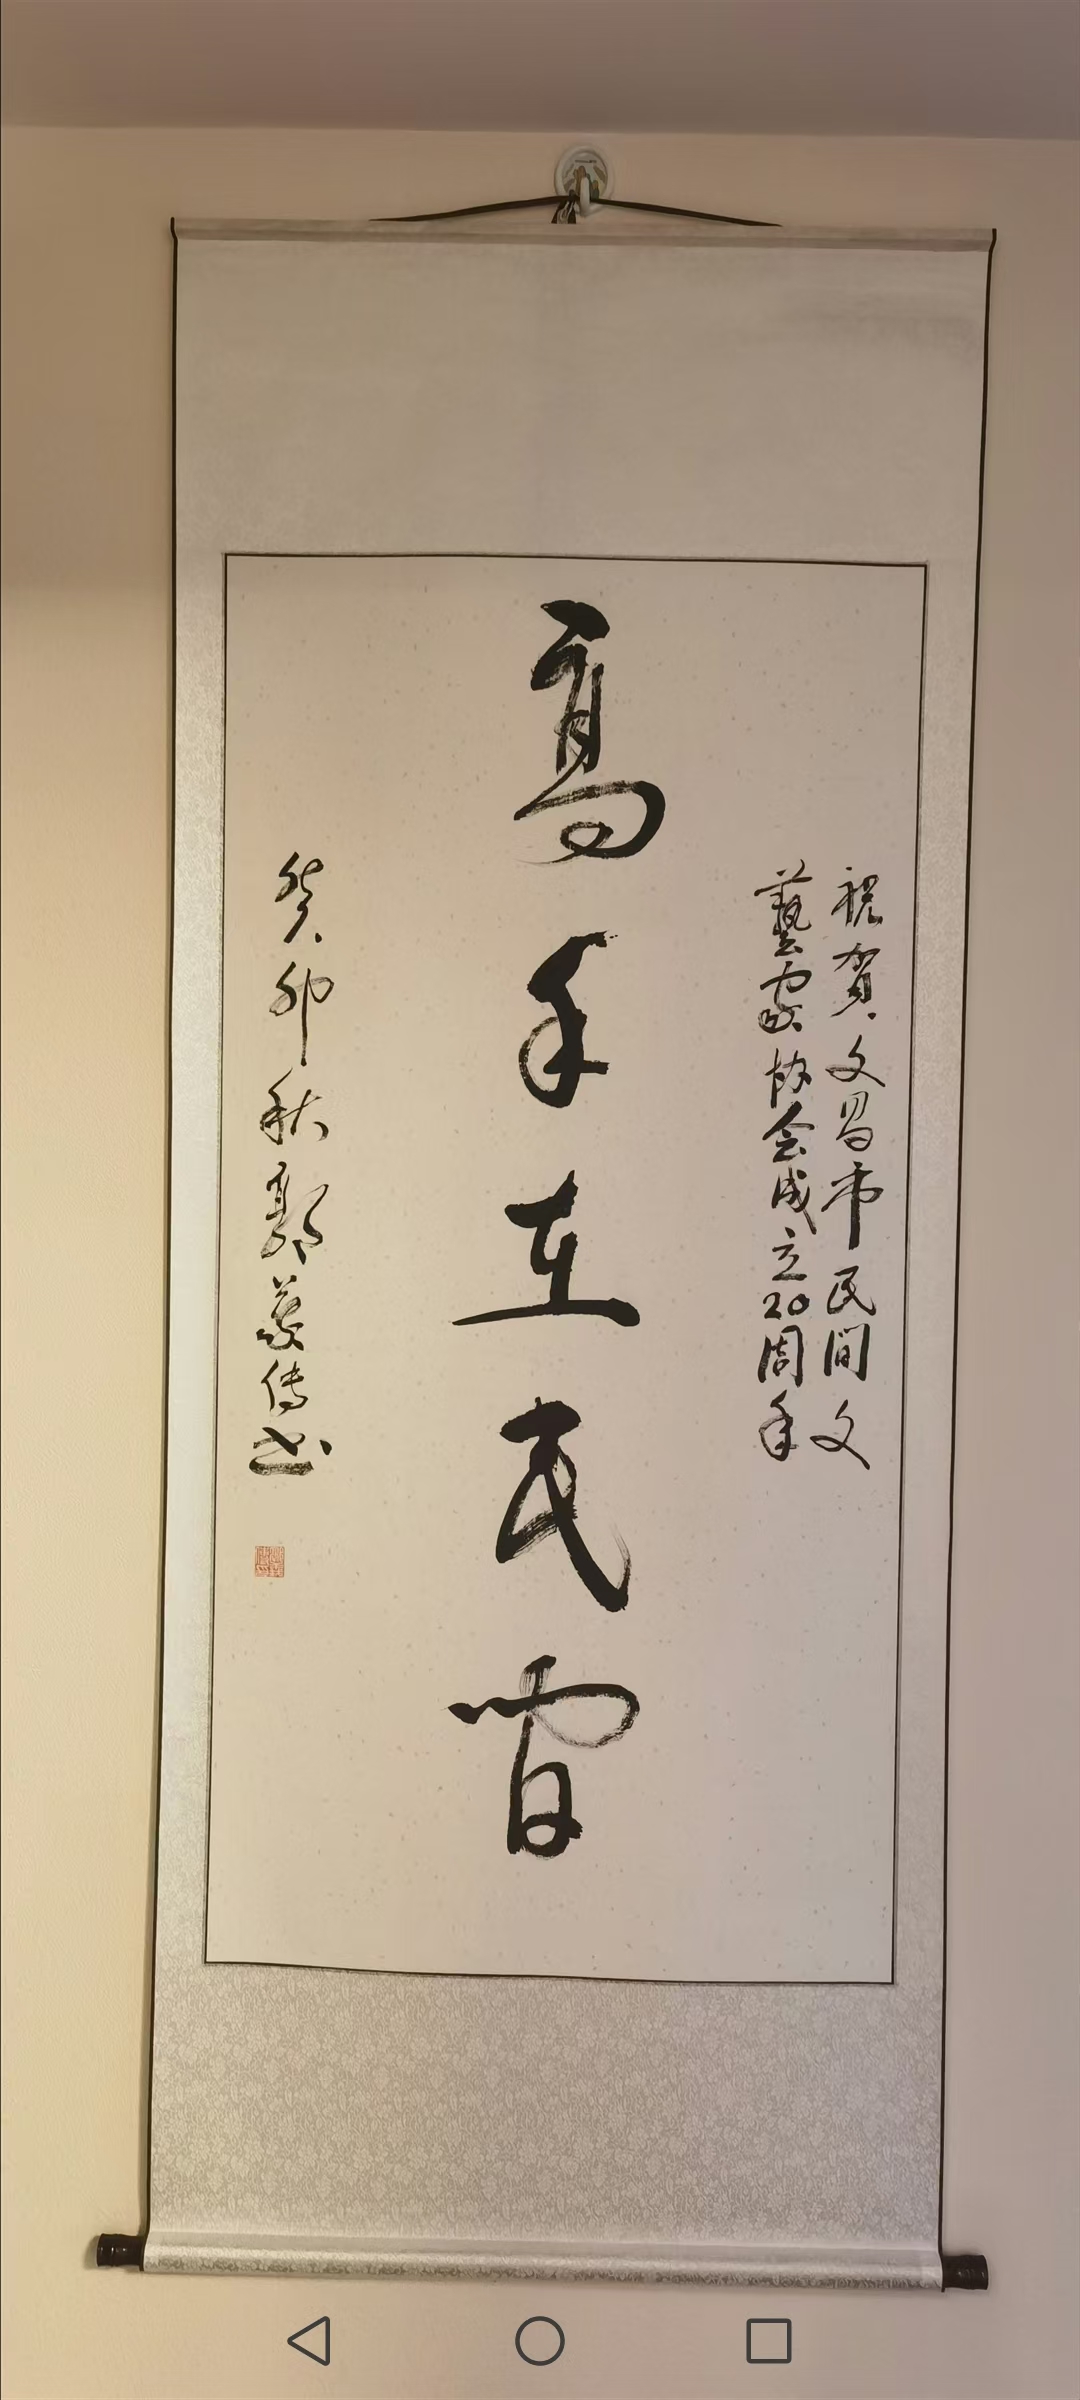 祝賀文昌市民間文
藝家协会成立20周年
高手在民间
癸卯秋郭義传书